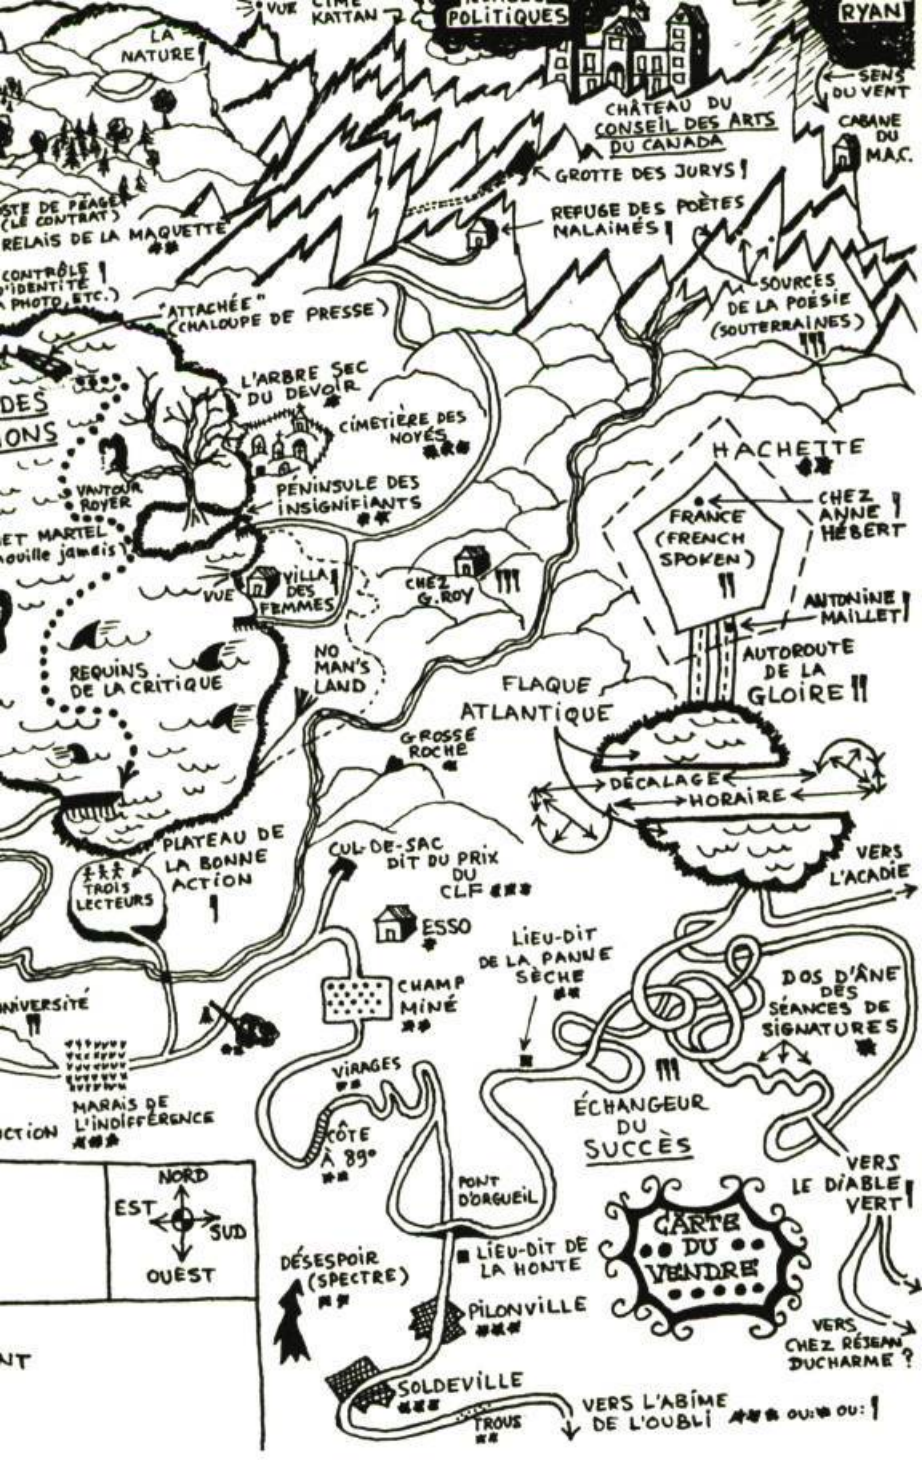 VUE
CIME
KATTAN
POLITIQUES
RYAN
LA
NATURE
SENS
DU VENT
CHÂTEAU DU
CONSEIL DES ARTS
DU CANADA
CABANE
DU
M.A.C.
GROTTE DES JURYS
STE DE PÉAGE
(LE CONTRAT)
RELAIS DE LA MAQUETTE
REFUGE DES POÈTES
MALAIMÉS
CONTRÔLE
D'IDENTITÉ
PHOTO, ETC.)
"ATTACHÉE"
(CHALOUPE DE PRESSE)
SOURCES
DE LA POÉSIE
(SOUTERRAINES)
DES
IONS
L'ARBRE SEC
DU DEVOIR
CIMETIÈRE DES
NOYÉS
HACHETTE
VANTOUR
ROYER
PÉNINSULE DES
INSIGNIFIANTS
FRANCE
(FRENCH
SPOKEN)
CHEZ
ANNE
HÉBERT
ET MARTEL
ouille jamais)
VUE
VILLA
DES
FEMMES
CHEZ
G. ROY
ANTONINE
MAILLET
REQUINS
DE LA CRITIQUE
NO
MAN'S
LAND
AUTOROUTE
DE LA
GLOIRE
FLAQUE
ATLANTIQUE
GROSSE
ROCHE
DÉCALAGE
HORAIRE
PLATEAU DE
LA BONNE
ACTION
TROIS
LECTEURS
CUL-DE-SAC
DIT DU PRIX
DU
CLF
VERS
L'ACADIE
ESSO
LIEU-DIT
DE LA PANNE
SÈCHE
CHAMP
MINÉ
DOS D'ÂNE
DES
SÉANCES DE
SIGNATURES
NIVERSITÉ
VIRAGES
MARAIS DE
L'INDIFFÉRENCE
CTION
CÔTE
À 89°
ÉCHANGEUR
DU
SUCCÈS
NORD
EST
SUD
OUEST
PONT
D'ORGUEIL
VERS
LE DIABLE
VERT
LIEU-DIT DE
LA HONTE
CARTE
DU
VENDRE
DÉSESPOIR
(SPECTRE)
PILONVILLE
VERS
CHEZ RÉJEAN
DUCHARME?
NT
SOLDEVILLE
TROUS
VERS L'ABÎME
DE L'OUBLI
OU:
OU: